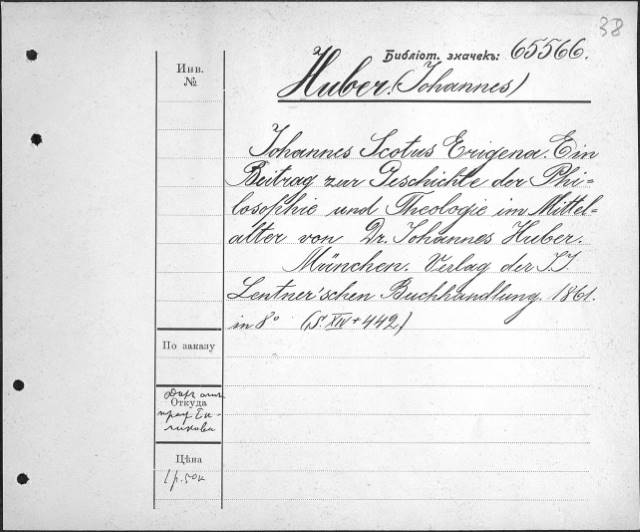 38
Библіот. значекъ: 65566.
Инв.
№
Huber. (Johannes)
Johannes Scotus Erigena. Ein
Beitrag zur Geschichte der Phi=
losophie und Theologie im Mittel=
alter von Dr. Johannes Huber.
München. Verlag der J. J.
Lentner'schen Buchhandlung. 1861.
in 8° (S. XIV + 442)
По заказу
Даръ
Откуда
проф.
Цѣна
1 р. 50 к